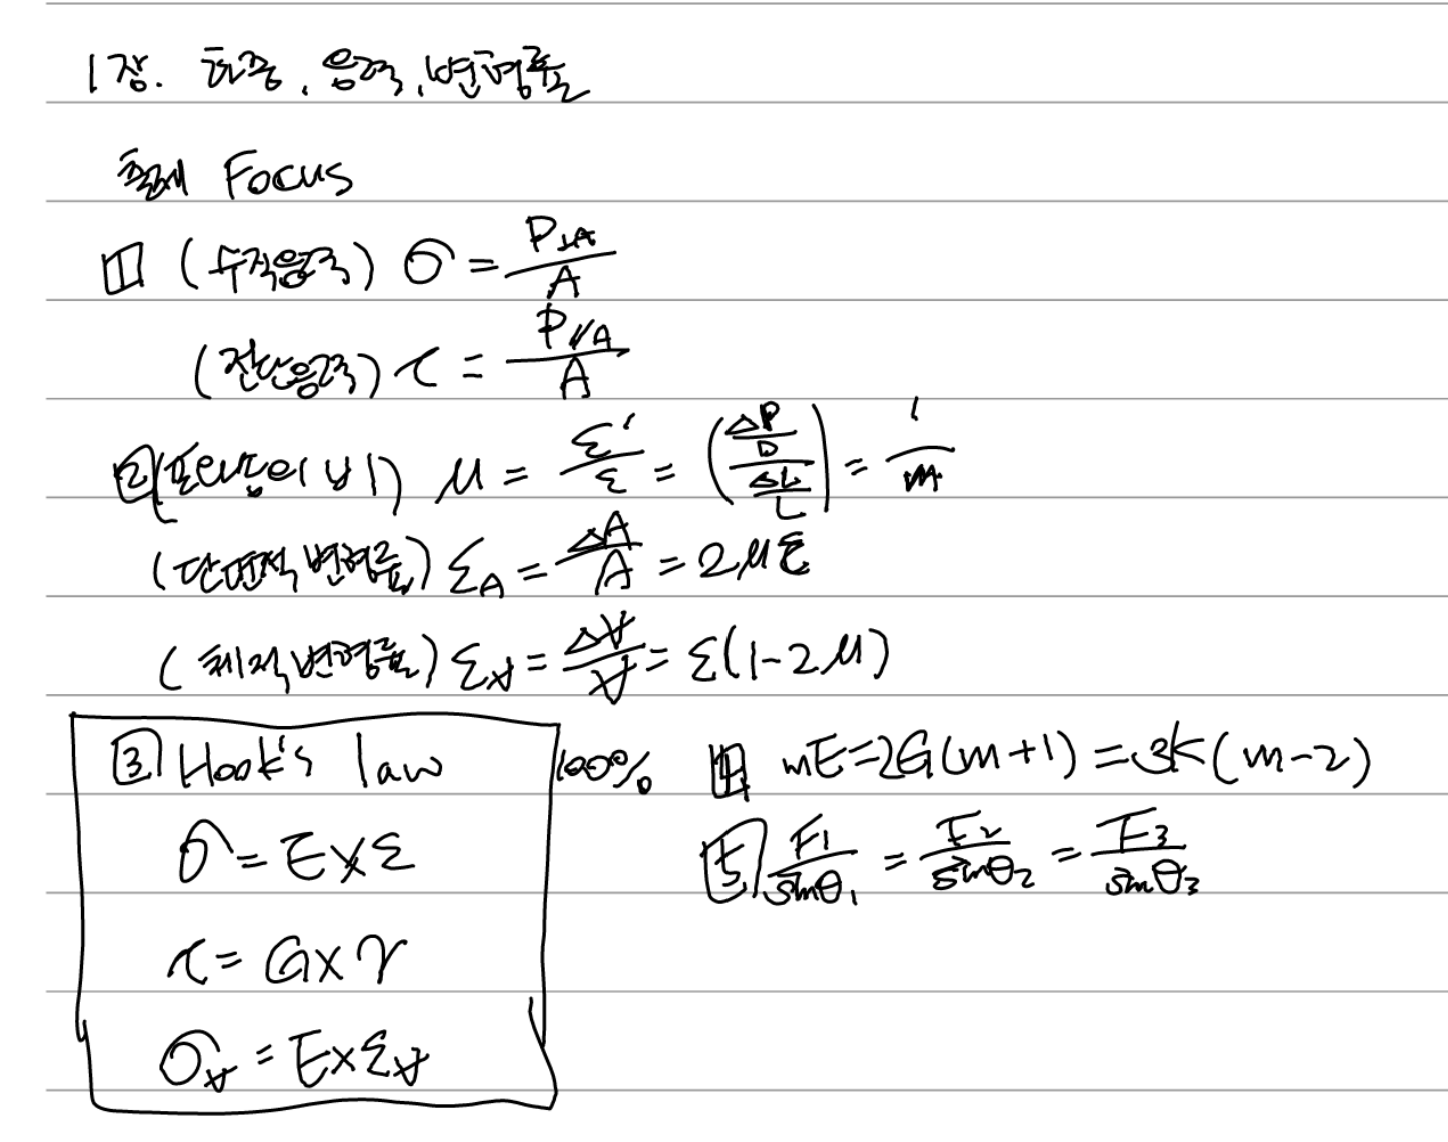 1장. 하중, 응력, 변형률
출제 Focus
1 (수직응력) σ = P⊥A / A
(전단응력) τ = P//A / A
2 (포와송의 비) μ = ε' / ε = ( (ΔD / D) / (ΔL / L) ) = 1 / m
(단면적 변형률) ε_A = ΔA / A = 2με
(체적변형률) ε_V = ΔV / V = ε(1-2μ)
3 Hook's law 100%
σ = E×ε
τ = G×γ
σ_V = E×ε_V
4 mE=2G(m+1)=3K(m-2)
5 F1 / sinθ1 = F2 / sinθ2 = F3 / sinθ3